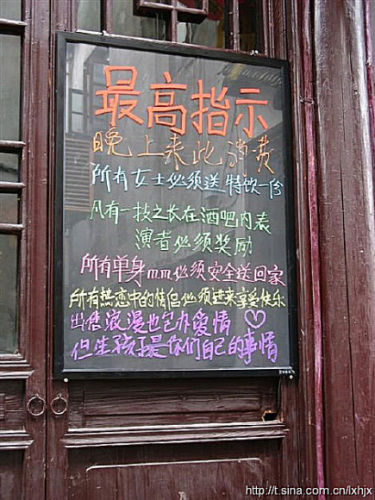 最高指示
晚上来此消费
所有女士必须送特饮一份
凡有一技之长在酒吧内表
演者必须奖励
所有单身mm必须安全送回家
所有热恋中的情侣必须进来享受快乐
出售浪漫也包办爱情♡
但生孩子是你们自己的事情
http://t.sina.com.cn/lxhjx